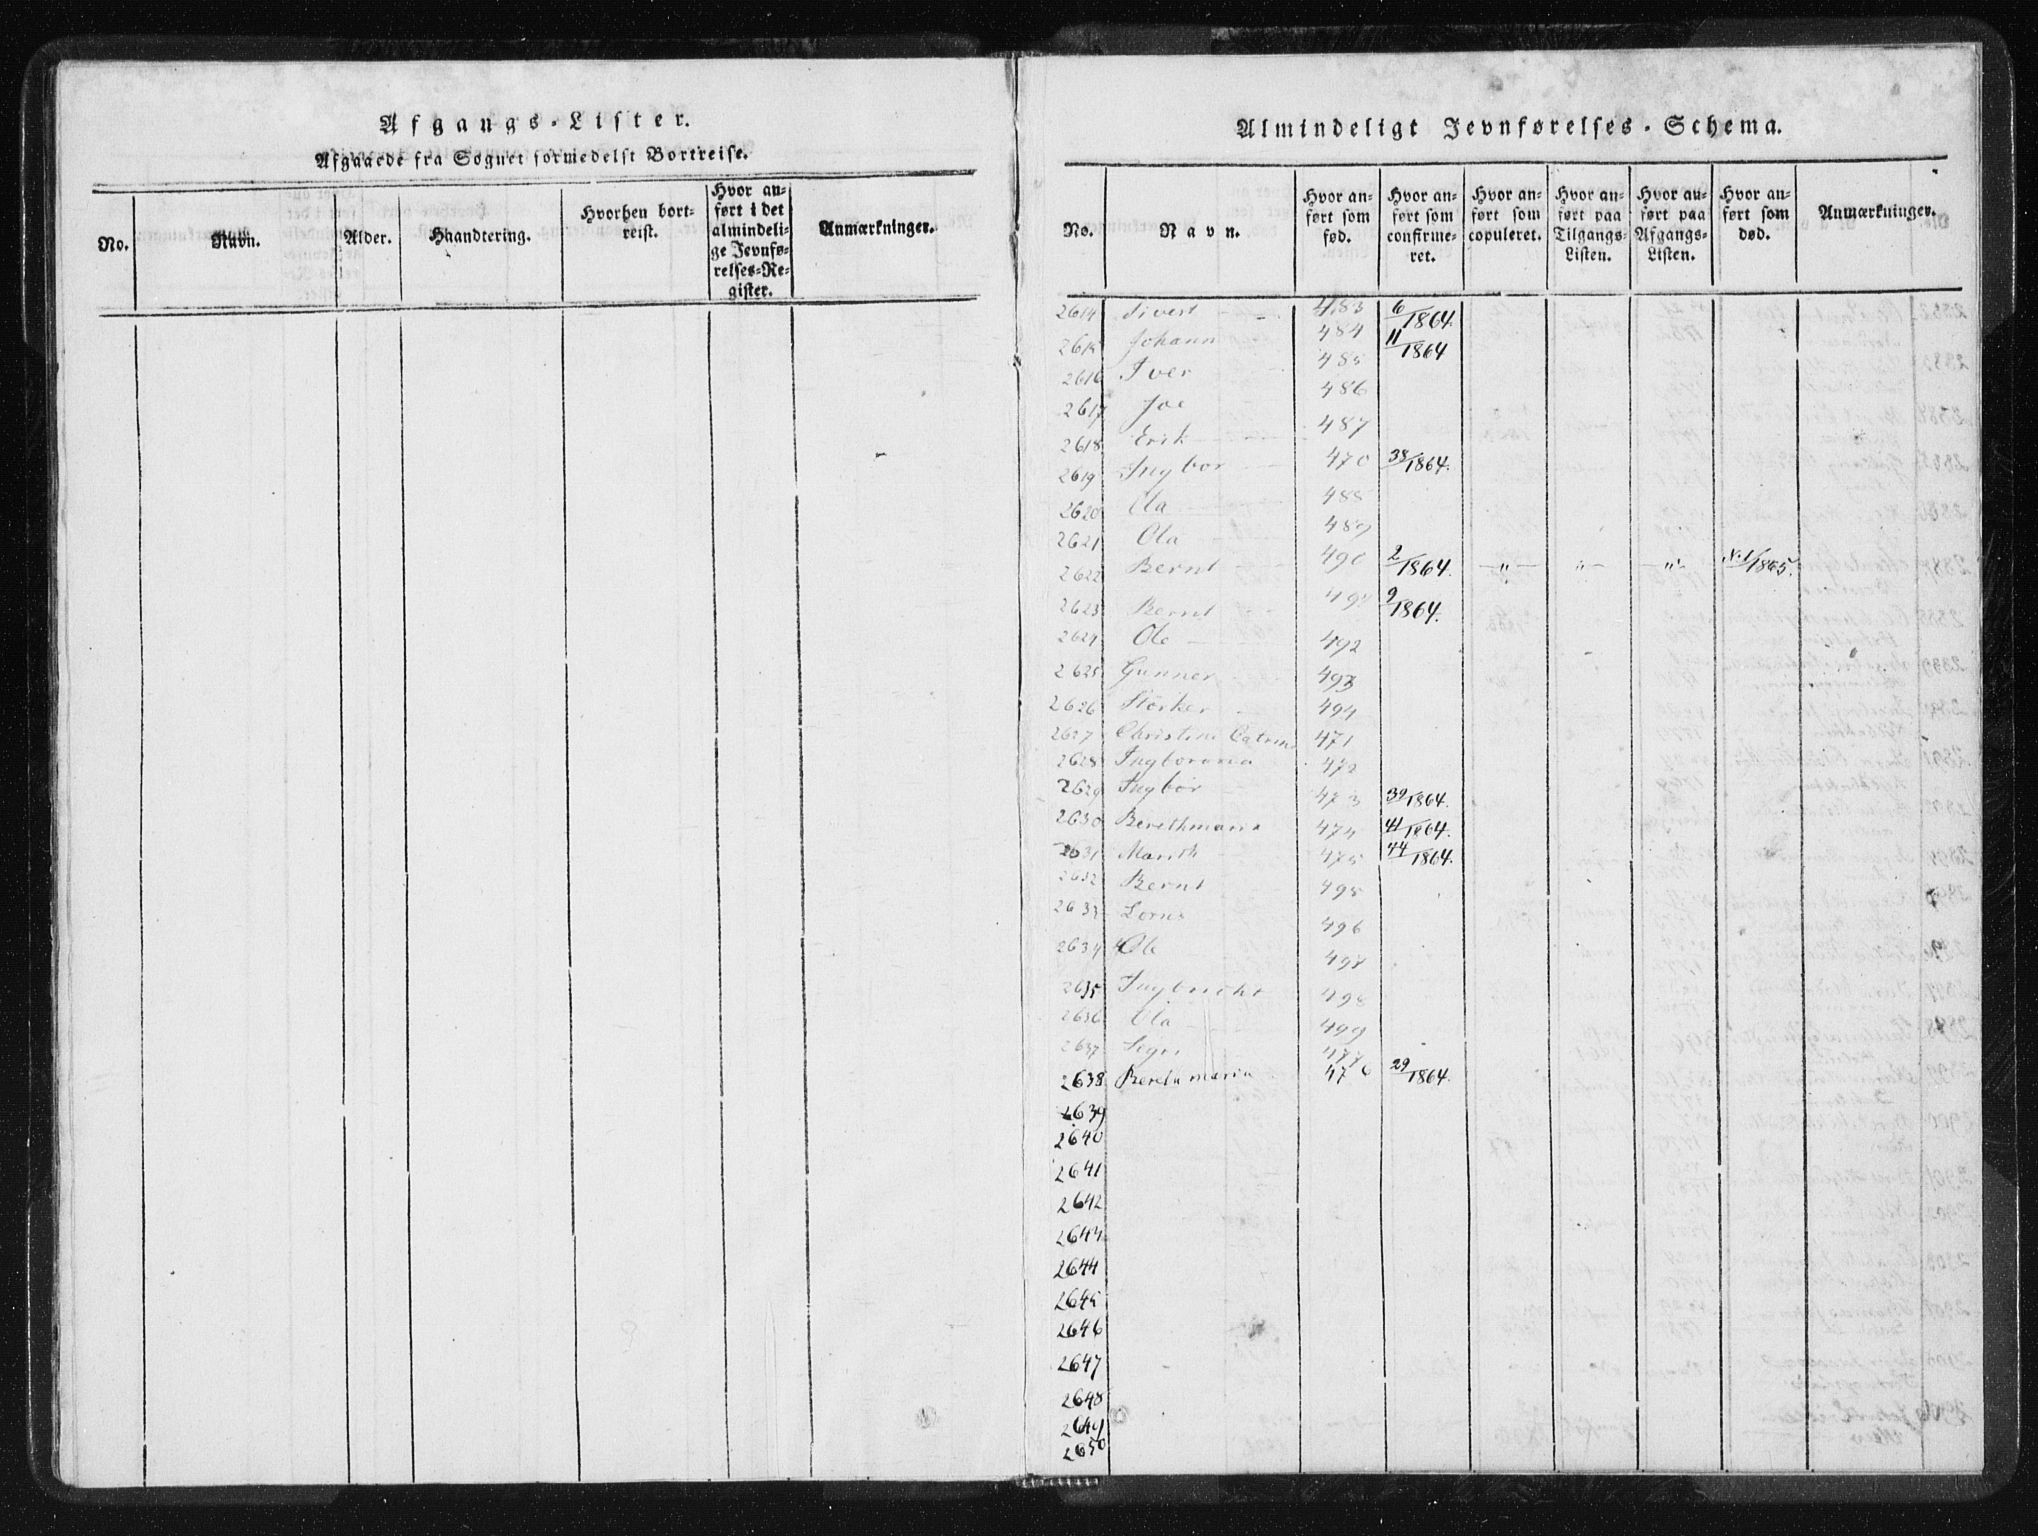 Afgangs-Lister.
Afgaaede fra Sognet formedelst Bortreise.
No.
Navn.
Alder.
Haandtering.
Hvorhen bort-
reist.
Hvor an-
ført i det
almindeli-
ge Jevnfø-
relses-Re-
gister.
Anmærkninger.
Almindeligt Jevnførelses-Schema.
No.
Navn.
Hvor an-
ført som
fød.
Hvor an-
ført som
confirme-
ret.
Hvor an-
ført som
copuleret.
Hvor an-
ført paa
Tilgangs-
Listen.
Hvor an-
ført paa
Afgangs-
Listen.
Hvor an-
ført som
død.
Anmærkninger.
2614 Sivert 483 6/1864.
2615 Johann 484 11/1864
2616 Iver 485
2617 Joe 486
2618 Erik 487
2619 Ingbor 470 38/1864.
2620 Ola 488
2621 Ola 489
2622 Bernt 490 2/1864. — " — " — " — N.1/1865.
2623 Bernt 9/1864.
2624 Ole 492
2625 Gunner 493
2626 Störker 494
2627 Christine Catrine 471
2628 472
2629 Ingbor 473 39/1864.
2630 Berethmaria 474 41/1864.
2631 Marith 475 44/1864.
2632 Bernt 495
2633 Lorns 496
2634 Ole 497
2635 Ingbricht 498
2636 Ola 499
2637 477
2638 Beretamaria 476 29/1864.
2639
2640
2641
2642
2643
2644
2645
2646
2647
2648
2649
2650